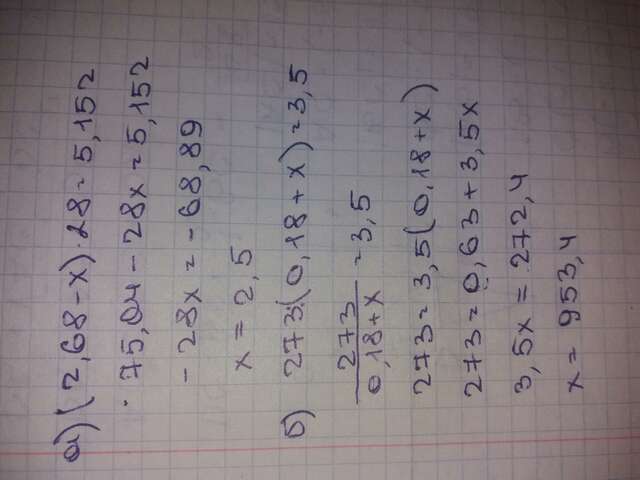 а) (2,68-x)·28=5,152
75,04-28x=5,152
-28x=-68,89
x=2,5
б) 273:(0,18+x)=3,5
273/0,18+x=3,5
273=3,5(0,18+x)
273=0,63+3,5x
3,5x=272,4
x=953,4